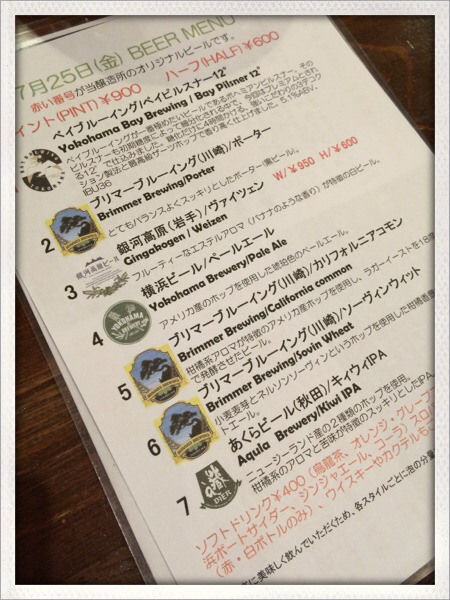 7月25日(金) BEER MENU
赤い番号が当醸造所のオリジナルビールです。
イント(PINT)￥900 ハーフ(HALF)￥600
ベイブルーイング/ベイピルスナー12°
Yokohama Bay Brewing / Bay Pilsner 12°
ベイブルーイングが一番極めたいビールであるボヘミアンピルスナー。その
IBU36
2
ブリマーブルーイング(川崎)/ポーター
Brimmer Brewing/Porter
とてもバランスよくスッキリとしたポーター(黒ビール)。
3
銀河高原ビール
銀河高原(岩手)/ヴァイツェン W/￥950 H/￥600
Gingakogen / Weizen
フルーティーなエステルアロマ（バナナのような香り）が特徴の白ビール。
4
YOKOHAMA
BREWERY
横浜ビール/ペールエール
Yokohama Brewery/Pale Ale
アメリカ産のホップを使用した琥珀色のペールエール。
5
ブリマーブルーイング(川崎)/カリフォルニアコモン
Brimmer Brewing/California common
柑橘系アロマが特徴のアメリカ産ホップを使用し、ラガーイーストを18度
で発酵させたビール。
6
ブリマーブルーイング(川崎)/ソーヴィンウィット
Brimmer Brewing/Sovin Wheat
小麦麦芽とネルソンソーヴィンというホップを使用した柑橘香豊
トエール。
7
BIER
あくらビール(秋田)/キィウィIPA
Aqula Brewery/Kiwi IPA
ニュージーランド産の２種類のホップを使用。
柑橘系のアロマと苦味が特徴のスッキリとしたIPA
ソフトドリンク￥400（烏龍茶、オレンジ、グレープ
浜ポートサイダー、ジンジャエール、コーラ）スロ
（赤・白ボトルのみ）、ウイスキーやカクテルもご
に美味しく飲んでいただくため、各スタイルごとに泡の分量